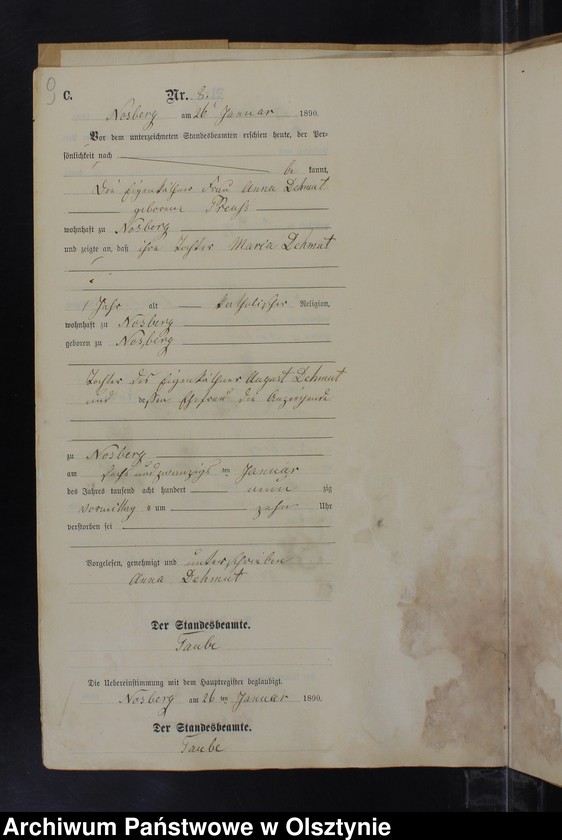 9
C. Nr. 8.
Nosberg am 26t Januar 1890.
Vor dem unterzeichneten Standesbeamten erschien heute, der Per-
sönlichkeit nach
be kannt,
Die Eigenkäthner Frau Anna Dehmut
geborene Preuß
wohnhaft zu Nosberg
und zeigte an, daß ihre Tochter Maria Dehmut
1 Jahr alt katholischer Religion,
wohnhaft zu Nosberg
geboren zu Nosberg
Tochter des Eigenkäthner August Dehmut
und dessen Ehefrau die Anzeigende
zu Nosberg
am sechs und zwanzigs ten Januar
des Jahres tausend acht hundert neun zig
Vormittag s um zehn Uhr
verstorben sei
Vorgelesen, genehmigt und unterschrieben
Anna Dehmut
Der Standesbeamte.
Taube
Die Uebereinstimmung mit dem Hauptregister beglaubigt.
Nosberg am 26 ten Januar 1890.
Der Standesbeamte.
Taube
Archiwum Państwowe w Olsztynie